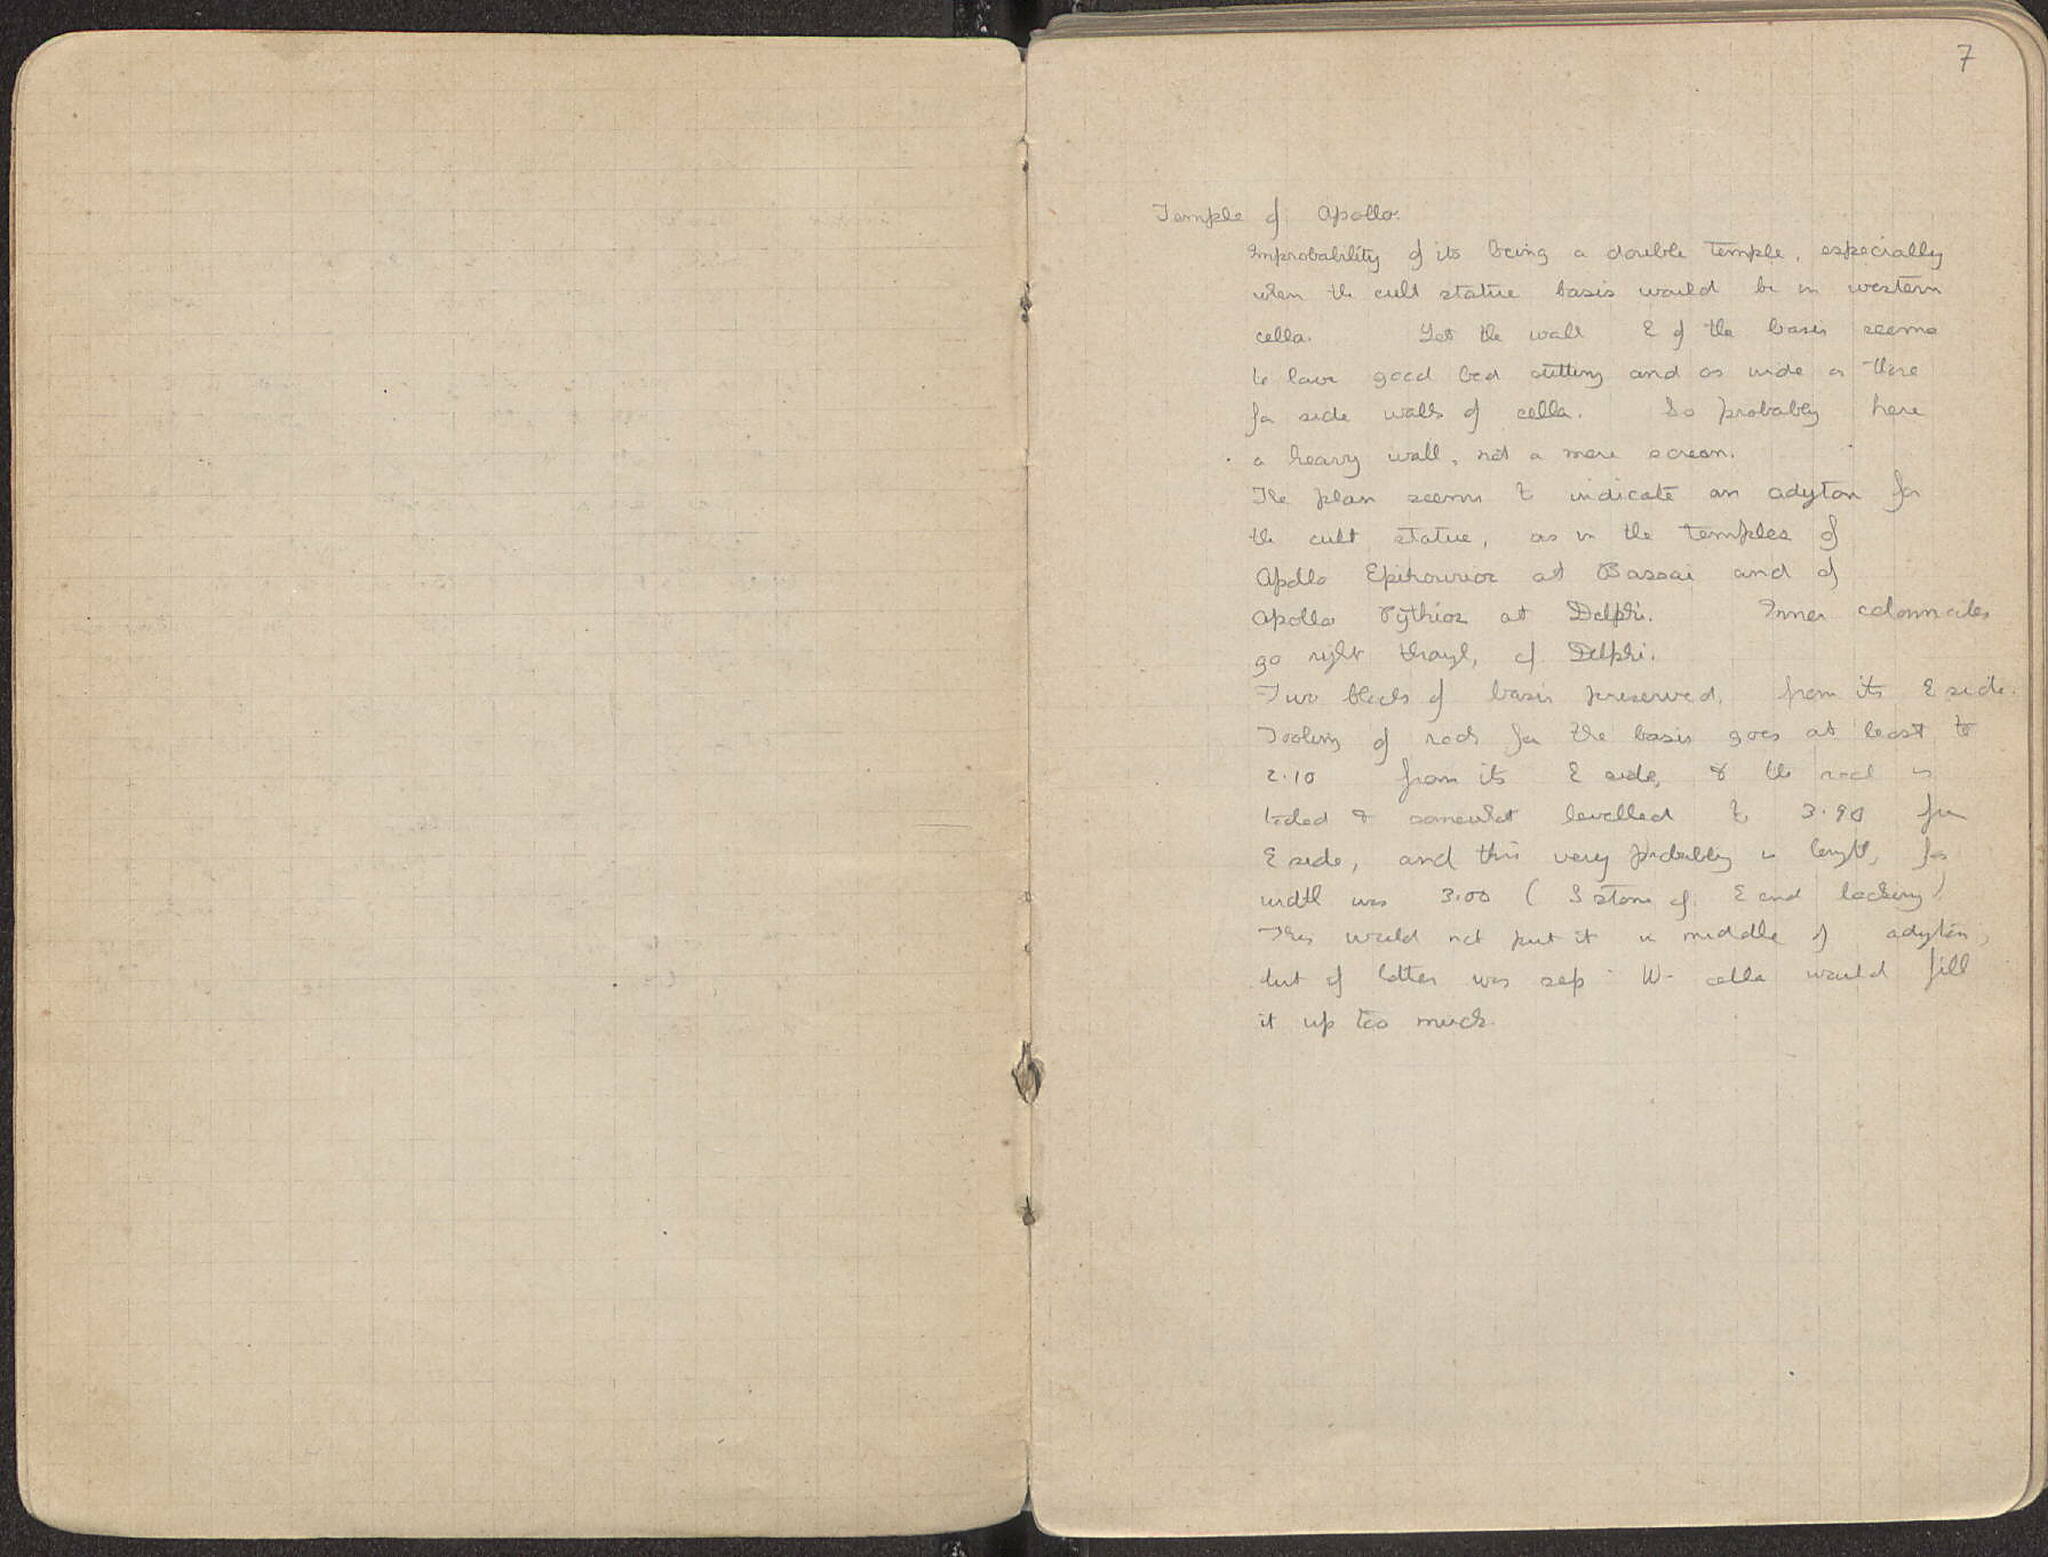 7
Temple of Apollo.
Improbability of its being a double temple, especially
when the cult statue basis would be in western
cella. Yet the wall E of the basis seems
to have good bed cutting and as wide as those
for side walls of cella. So probably here
a heavy wall, not a mere screen.
The plan seems to indicate an adyton for
the cult statue, as in the temples of
Apollo Epikourios at Bassai and of
Apollo Pythios at Delphi. Inner colonnades
go right through, cf. Delphi.
Two blocks of basis preserved, from its E side.
Tooling of rock for the basis goes at least to
2.10 from its E side, & the rock is
tooled & somewhat levelled to 3.90 from
E side, and this very probably is length, for
width was 3.00 (S stone of E end lacking)
This would not put it in middle of adyton,
but if latter was sep W- cella would fill
it up too much.